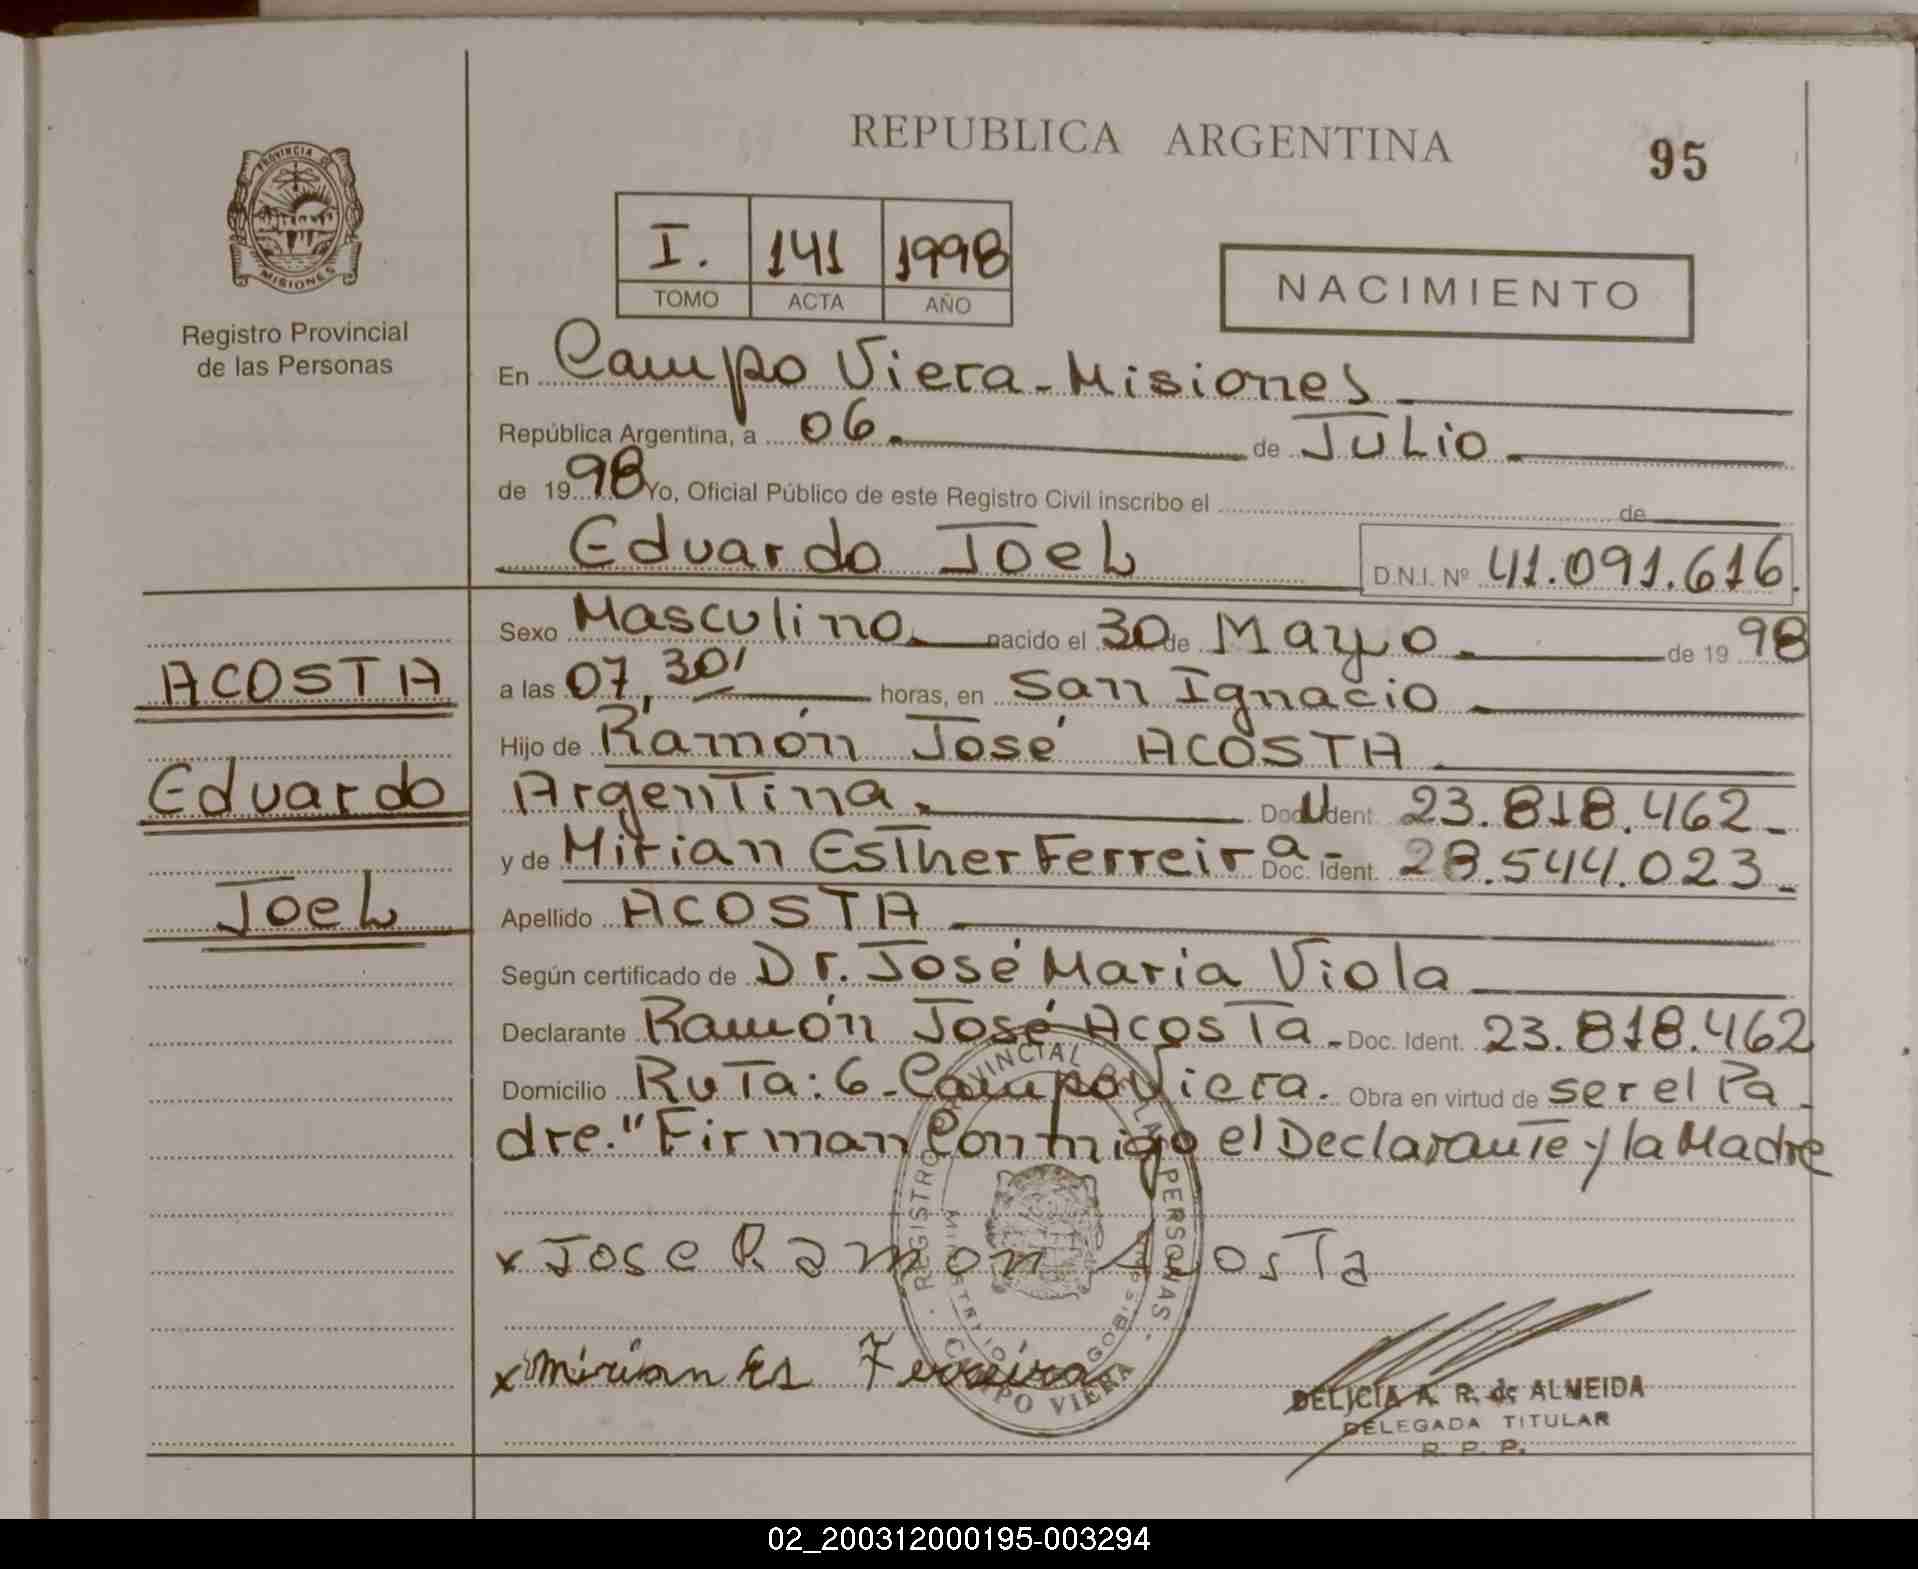 REPUBLICA ARGENTINA
95
PROVINCIA DE
MISIONES
Registro Provincial
de las Personas
I. 141 1998
TOMO ACTA AÑO
NACIMIENTO
En Campo Viera - Misiones
República Argentina, a 06 de Julio
de 1998 Yo, Oficial Público de este Registro Civil inscribo el de
Eduardo Joel D.N.I. Nº 41.091.616.
Sexo Masculino nacido el 30 de Mayo de 1998
a las 07,30' horas, en San Ignacio
Hijo de Ramón José ACOSTA
Argentina. Doc. Ident. 23.818.462-
y de Mirian Esther Ferreira - Doc. Ident. 28.544.023-
Apellido ACOSTA
Según certificado de Dr. José Maria Viola
Declarante Ramón José Acosta - Doc. Ident. 23.818.462
Domicilio Ruta: 6 - Campo Viera. Obra en virtud de ser el Pa-
dre." Firman Conmigo el Declarante y la Madre
ACOSTA
Eduardo
Joel
x Jose Ramon Acosta
x Mirian Es Ferreira
REGISTRO PROVINCIAL DE LAS PERSONAS
CAMPO VIERA
DELICIA A. R. de ALMEIDA
DELEGADA TITULAR
R. P. P.
02_200312000195-003294